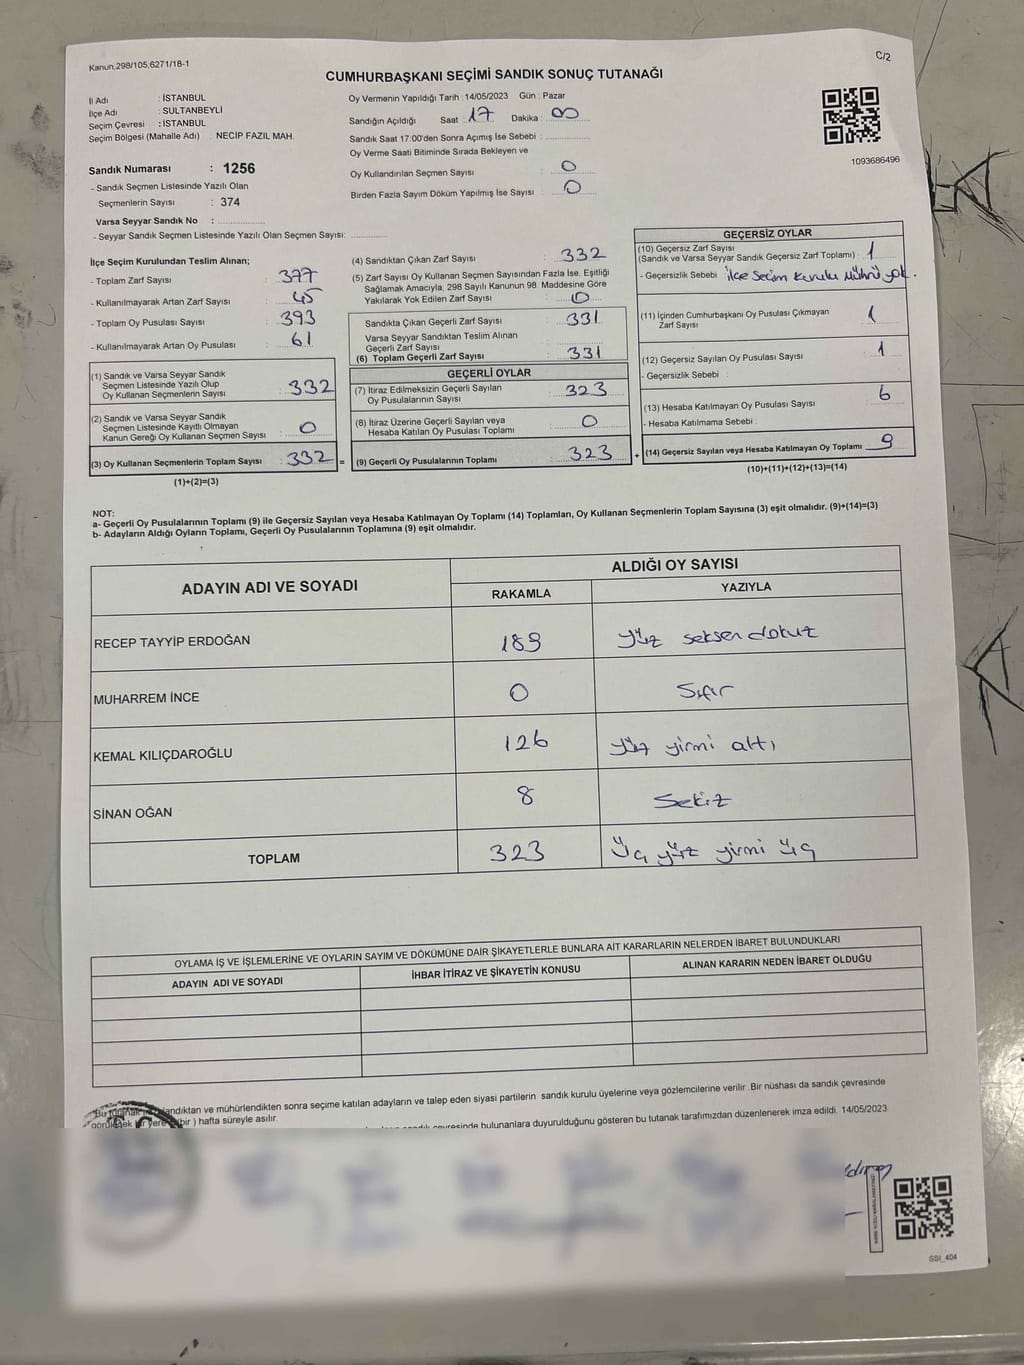 Kanun,298/105,6271/18-1
C/2
CUMHURBAŞKANI SEÇİMİ SANDIK SONUÇ TUTANAĞI
İl Adı : İSTANBUL
İlçe Adı : SULTANBEYLİ
Seçim Çevresi : İSTANBUL
Seçim Bölgesi (Mahalle Adı) : NECİP FAZIL MAH.
Sandık Numarası : 1256
- Sandık Seçmen Listesinde Yazılı Olan
Seçmenlerin Sayısı : 374
Varsa Seyyar Sandık No :
- Seyyar Sandık Seçmen Listesinde Yazılı Olan Seçmen Sayısı:
Oy Vermenin Yapıldığı Tarih : 14/05/2023 Gün : Pazar
Sandığın Açıldığı Saat : 17 Dakika : 00
Sandık Saat 17:00'den Sonra Açımış İse Sebebi :
Oy Verme Saati Bitiminde Sırada Bekleyen ve
Oy Kullandırılan Seçmen Sayısı : 0
Birden Fazla Sayım Döküm Yapılmış İse Sayısı : 0
1093686496
İlçe Seçim Kurulundan Teslim Alınan;
- Toplam Zarf Sayısı : 377
- Kullanılmayarak Artan Zarf Sayısı : 45
- Toplam Oy Pusulası Sayısı : 393
- Kullanılmayarak Artan Oy Pusulası : 61
(1) Sandık ve Varsa Seyyar Sandık
Seçmen Listesinde Yazılı Olup
Oy Kullanan Seçmenlerin Sayısı : 332
(2) Sandık ve Varsa Seyyar Sandık
Seçmen Listesinde Kayıtlı Olmayan
Kanun Gereği Oy Kullanan Seçmen Sayısı : 0
(3) Oy Kullanan Seçmenlerin Toplam Sayısı : 332 =
(1)+(2)=(3)
(4) Sandıktan Çıkan Zarf Sayısı : 332
(5) Zarf Sayısı Oy Kullanan Seçmen Sayısından Fazla İse, Eşitliği
Sağlamak Amacıyla, 298 Sayılı Kanunun 98. Maddesine Göre
Yakılarak Yok Edilen Zarf Sayısı : 0
Sandıkta Çıkan Geçerli Zarf Sayısı : 331
Varsa Seyyar Sandıktan Teslim Alınan
Geçerli Zarf Sayısı :
(6) Toplam Geçerli Zarf Sayısı : 331
GEÇERLİ OYLAR
(7) İtiraz Edilmeksizin Geçerli Sayılan
Oy Pusulalarının Sayısı : 323
(8) İtiraz Üzerine Geçerli Sayılan veya
Hesaba Katılan Oy Pusulası Toplamı : 0
(9) Geçerli Oy Pusulalarının Toplamı : 323 +
GEÇERSİZ OYLAR
(10) Geçersiz Zarf Sayısı
(Sandık ve Varsa Seyyar Sandık Geçersiz Zarf Toplamı) : 1
- Geçersizlik Sebebi : ilçe Seçim kurulu Mührü yok.
(11) İçinden Cumhurbaşkanı Oy Pusulası Çıkmayan
Zarf Sayısı : 1
(12) Geçersiz Sayılan Oy Pusulası Sayısı : 1
- Geçersizlik Sebebi :
(13) Hesaba Katılmayan Oy Pusulası Sayısı : 6
- Hesaba Katılmama Sebebi :
(14) Geçersiz Sayılan veya Hesaba Katılmayan Oy Toplamı : 9
(10)+(11)+(12)+(13)=(14)
NOT:
a- Geçerli Oy Pusulalarının Toplamı (9) ile Geçersiz Sayılan veya Hesaba Katılmayan Oy Toplamı (14) Toplamları, Oy Kullanan Seçmenlerin Toplam Sayısına (3) eşit olmalıdır. (9)+(14)=(3)
b- Adayların Aldığı Oyların Toplamı, Geçerli Oy Pusulalarının Toplamına (9) eşit olmalıdır.
ADAYIN ADI VE SOYADI
ALDIĞI OY SAYISI
RAKAMLA YAZIYLA
RECEP TAYYİP ERDOĞAN 189 yüz seksen dokuz
MUHARREM İNCE 0 Sıfır
KEMAL KILIÇDAROĞLU 126 yüz yirmi altı
SİNAN OĞAN 8 Sekiz
TOPLAM 323 Üç yüz yirmi üç
OYLAMA İŞ VE İŞLEMLERİNE VE OYLARIN SAYIM VE DÖKÜMÜNE DAİR ŞİKAYETLERLE BUNLARA AİT KARARLARIN NELERDEN İBARET BULUNDUKLARI
ADAYIN ADI VE SOYADI İHBAR İTİRAZ VE ŞİKAYETİN KONUSU ALINAN KARARIN NEDEN İBARET OLDUĞU
Bu tutanak landıktan ve mühürlendikten sonra seçime katılan adayların ve talep eden siyasi partilerin sandık kurulu üyelerine veya gözlemcilerine verilir. Bir nüshası da sandık çevresinde
bir ) hafta süreyle asılır.
çevresinde bulunanlara duyurulduğunu gösteren bu tutanak tarafımızdan düzenlenerek imza edildi. 14/05/2023
SSI_404